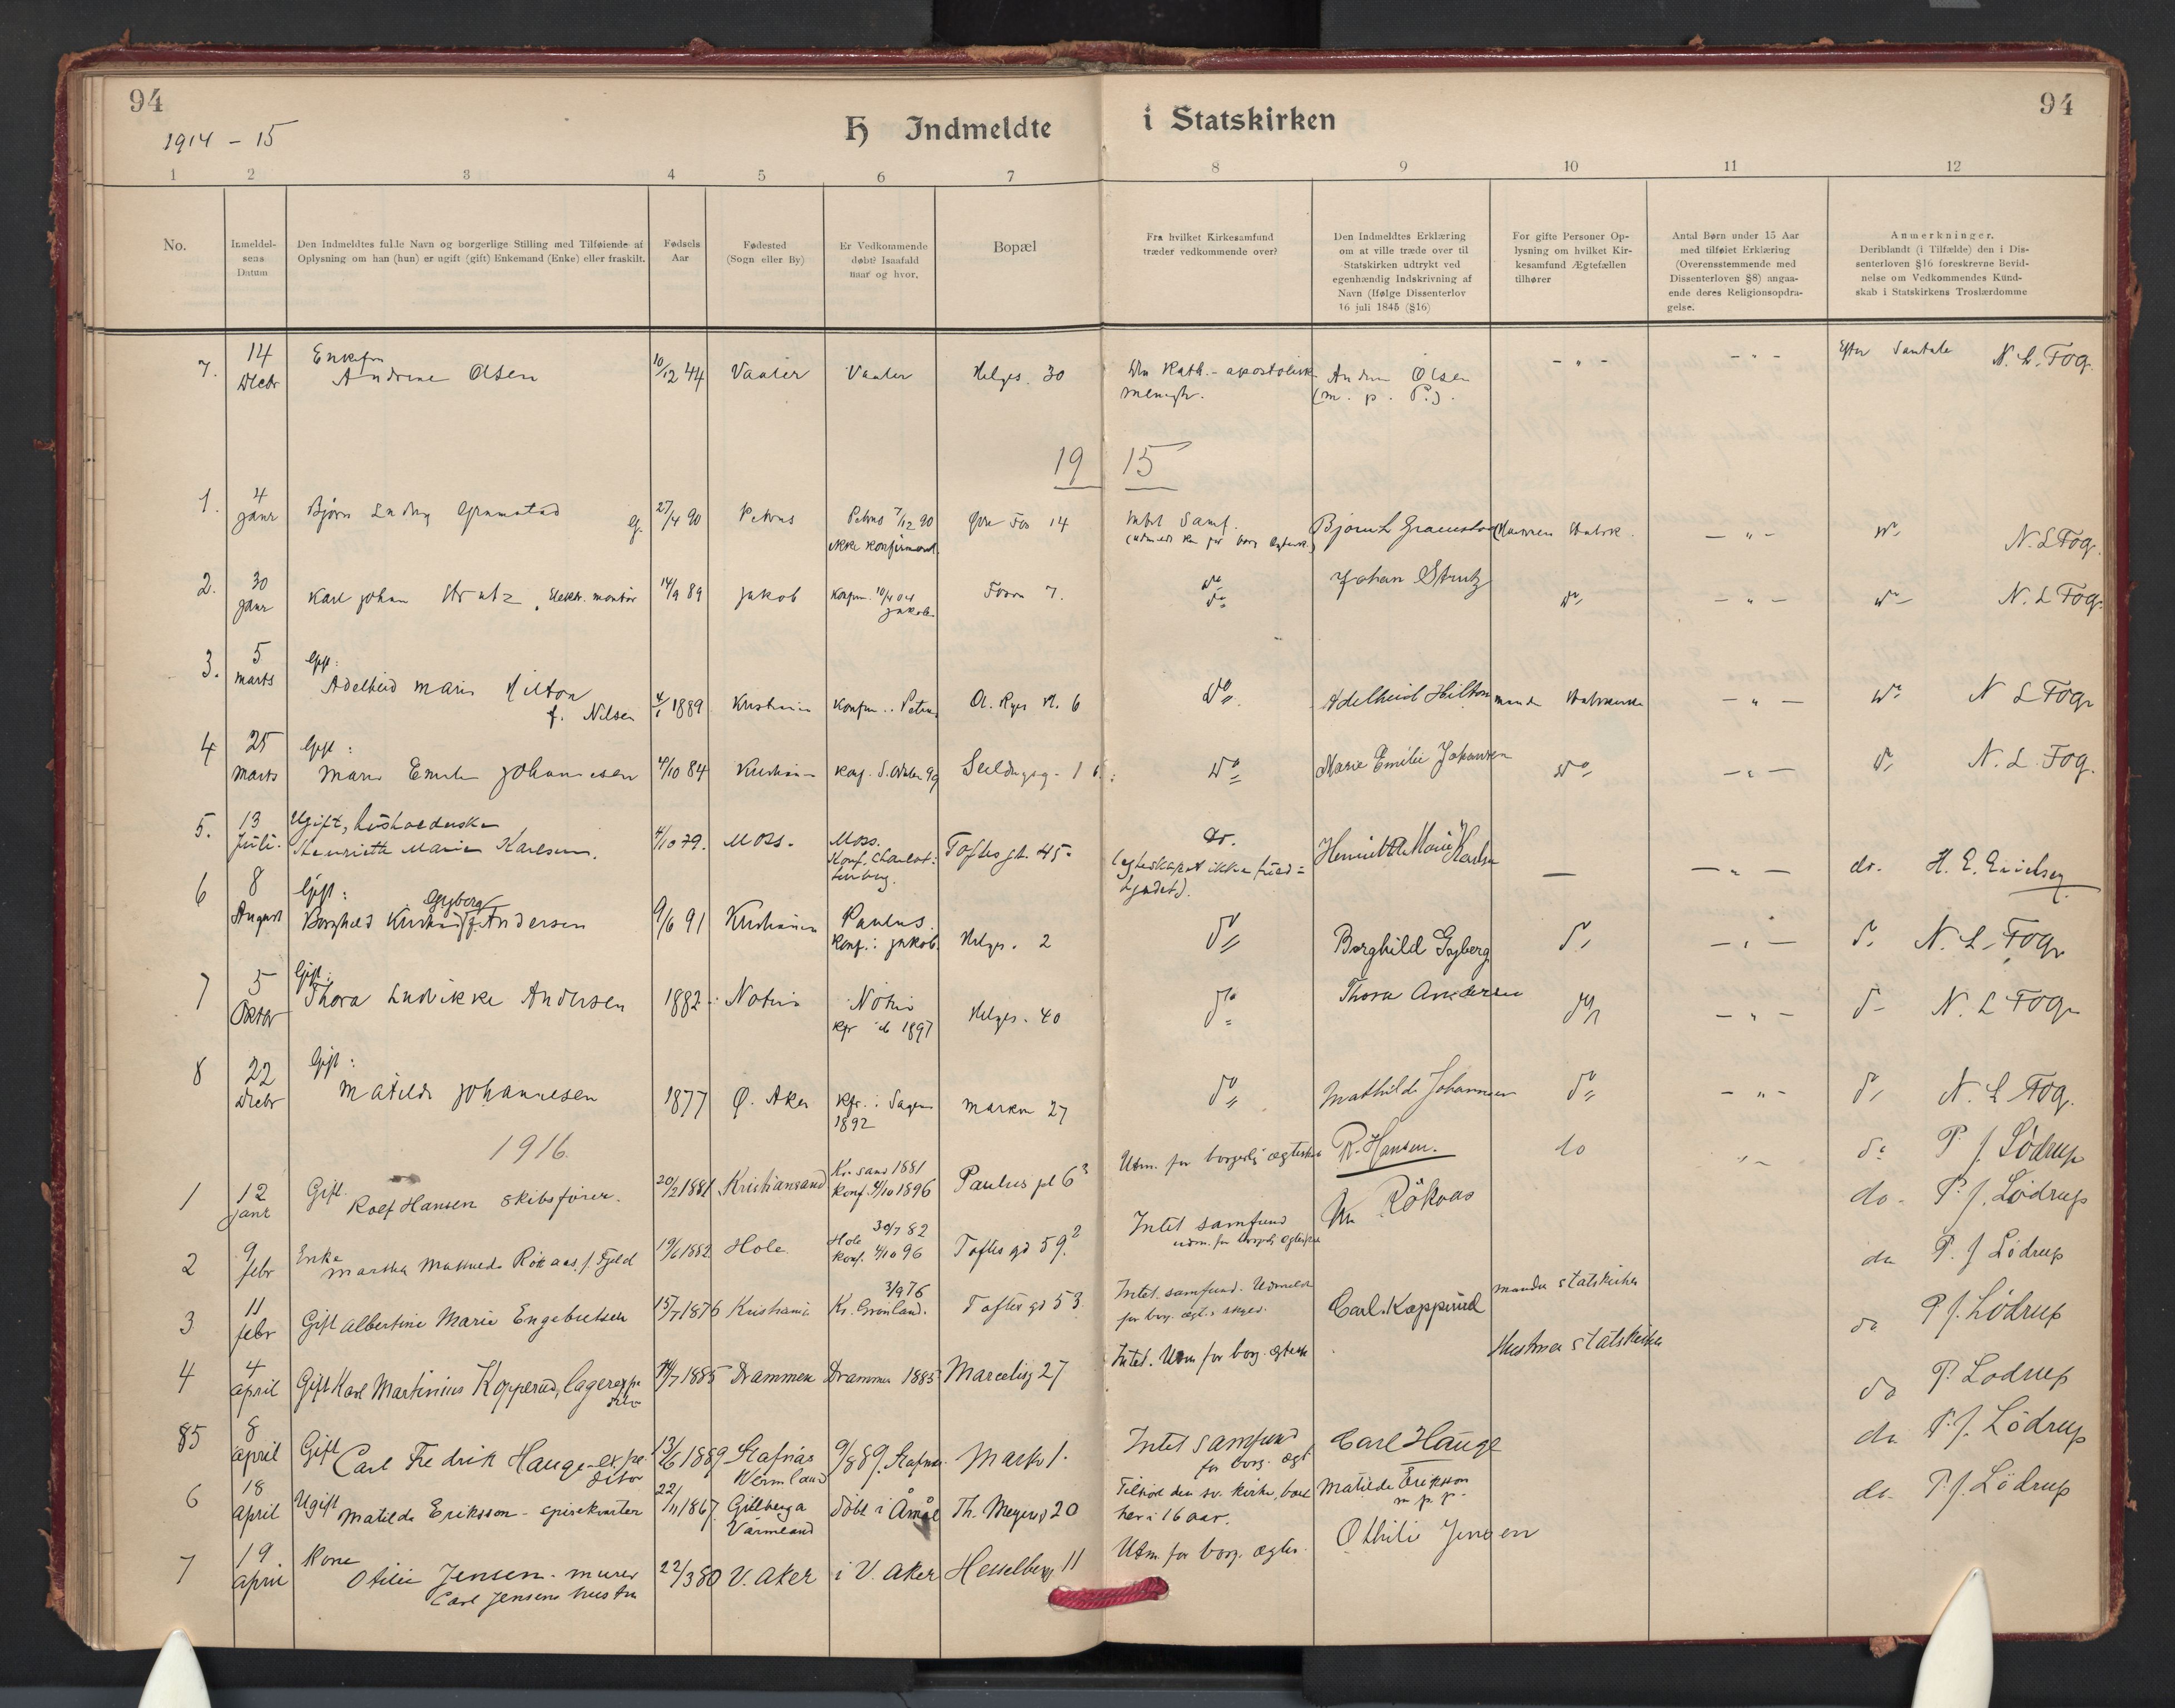 94
94
1914 - 15
H Indmeldte i Statskirken
1 2 3 4 5 6 7 8 9 10 11 12
No.
Inmeldel-
sens
Datum
Den Indmeldtes fulde Navn og borgerlige Stilling med Tilføiende af
Oplysning om han (hun) er ugift (gift) Enkemand (Enke) eller fraskilt.
Fødsels
Aar
Fødested
(Sogn eller By)
Er Vedkommende
døbt? Isaafald
naar og hvor.
Bopæl
Fra hvilket Kirkesamfund
træder vedkommende over?
Den Indmeldtes Erklæring
om at ville træde over til
Statskirken udtrykt ved
egenhændig Indskrivning af
Navn (Ifølge Dissenterlov
16 juli 1845 (§16)
For gifte Personer Op-
lysning om hvilket Kir-
kesamfund Ægtefællen
tilhører
Antal Børn under 15 Aar
med tilføiet Erklæring
(Overensstemmende med
Dissenterloven §8) angaa-
ende deres Religionsopdra-
gelse.
Anmerkninger.
Deriblandt (i Tilfælde) den i Dis-
senterloven §16 foreskrevne Bevid-
nelse om Vedkommendes Kund-
skab i Statskirkens Troslærdomme
7. 14 Decbr Enkefru
Andrine Olsen 10/12 44 Vaaler Vaaler Helges. 30 Den Kath.-apostolisk menigh. Olsen (m. p. P.). - " - - " - Efter Samtale N. L. Fog.
1915
1. 4 Janr Bjørn Ludvig Gramstad g. 27/4 90 Petrus Petrus 7/12 90 14 Intet Samf. Bjørn L Gramstad - " - N. L Fog.
ikke konfirmeret
2. 30 Janr Karl Johan Strutz, Elektr. montør 14/9 89 Jakob Konfirm. 10/4 04 Jakob 7. do Johan Strutz do - " - do N. L Fog.
3. 5 Marts Gift:
Adelheid Marie Hilton
f. Nilsen 4/1 1889 Kristiania Konfirm. Petrus O. Ryes Pl. 6 do Adelheid Hilton manden Statskirken - " - do N L Fog
4 25 Marts Gift:
Marie Emilie Johannesen 4/10 84 Kristiania Konf. 99 16 do Marie Emilie Johansen do - " - do N. L. Fog.
5. 13 Juli. Ugift, husholderske
Henriette Marie Karlsen. 4/10 79. Moss. Moss. Toftes gt. 45. do. Henriette Marie Karlsen — - " - do. H. E.
Konf. Charlot-
tenberg.
(egteskapet ikke
6 8 August Gift: Gyberg
Borghild Kristine f. Andersen 9/6 91 Kristiania Paulus. Helges. 2 do Borghild Gyberg do - " - do N. L. Fog
Konf.: Jakob.
7 5 Oktbr Gift:
Thora Ludvikke Andersen 1882. Helges. 40 do Thora Andersen do - " - do N. L Fog
1897
8 22 Decbr Gift:
Matilde Johannesen 1877 Ø. Aker Kfr. i Sagene Markv 27 do Mathilde Johannesen do - " - do N. L Fog.
1892
1916.
1 12 Janr Gift. Rolf Hansen skibsfører. 20/2 1881 Kristiansand Kr.sand 1881 Konf. 4/10 1896 Paulus pl 6³ Utm. for borgerlig ægtesk. R. Hansen. do do P. J. Lödrup
2 9 febr Enke Martha Mathilde Rökaas, f. Fjeld 19/6 1882 Hole. Hole 30/7 82 Konf. 4/10 96 Toftes gd 59.² Intet samfund Rökaas do. P. J. Lödrup
utm. for borgerlig
3 11 febr Gift Albertine Marie Engebretsen 15/7 1876 Kristiania 3/9 76 Kr. Grønland. Toftes gd 53 Intet samfund. Utmeldt for borg. mandn statskirken do P. J Lödrup
4 4 april Gift Karl Martinius Kopperud, lagerexpe
ditør 14/7 1885 Drammen Drammen 1885 Marcelisg 27 Intet. Utm for borg. ægtesk Carl Kopperud Hustruen statskirken do P J. Lödrup
85 8 april Gift Carl Fredrik Hauge - expe
ditør 13/6 1889 Stafnäs Wermland 9/8 89. Stafnäs. Markv 1. Intet samfund for borg. ægt. Carl Hauge do P. Lödrup
6 18 april Ugift Matilde Eriksson - spisekvarter 22/11 1867 Gillberga Värmland döbt i Åmål Th. Meyersg 20 Tilhörte den sv. kirke, boet her i 16 aar. Matilde Eriksson m. p. p. do P. J. Lödrup
7 19. april Kone Otilie Jensen - murer
Carl Jensens hustru 22/3 80 V. Aker i V. Aker Hesselbergg 11 Utm. for borg. ægtes. Othilie Jensen do P. J. Lödrup